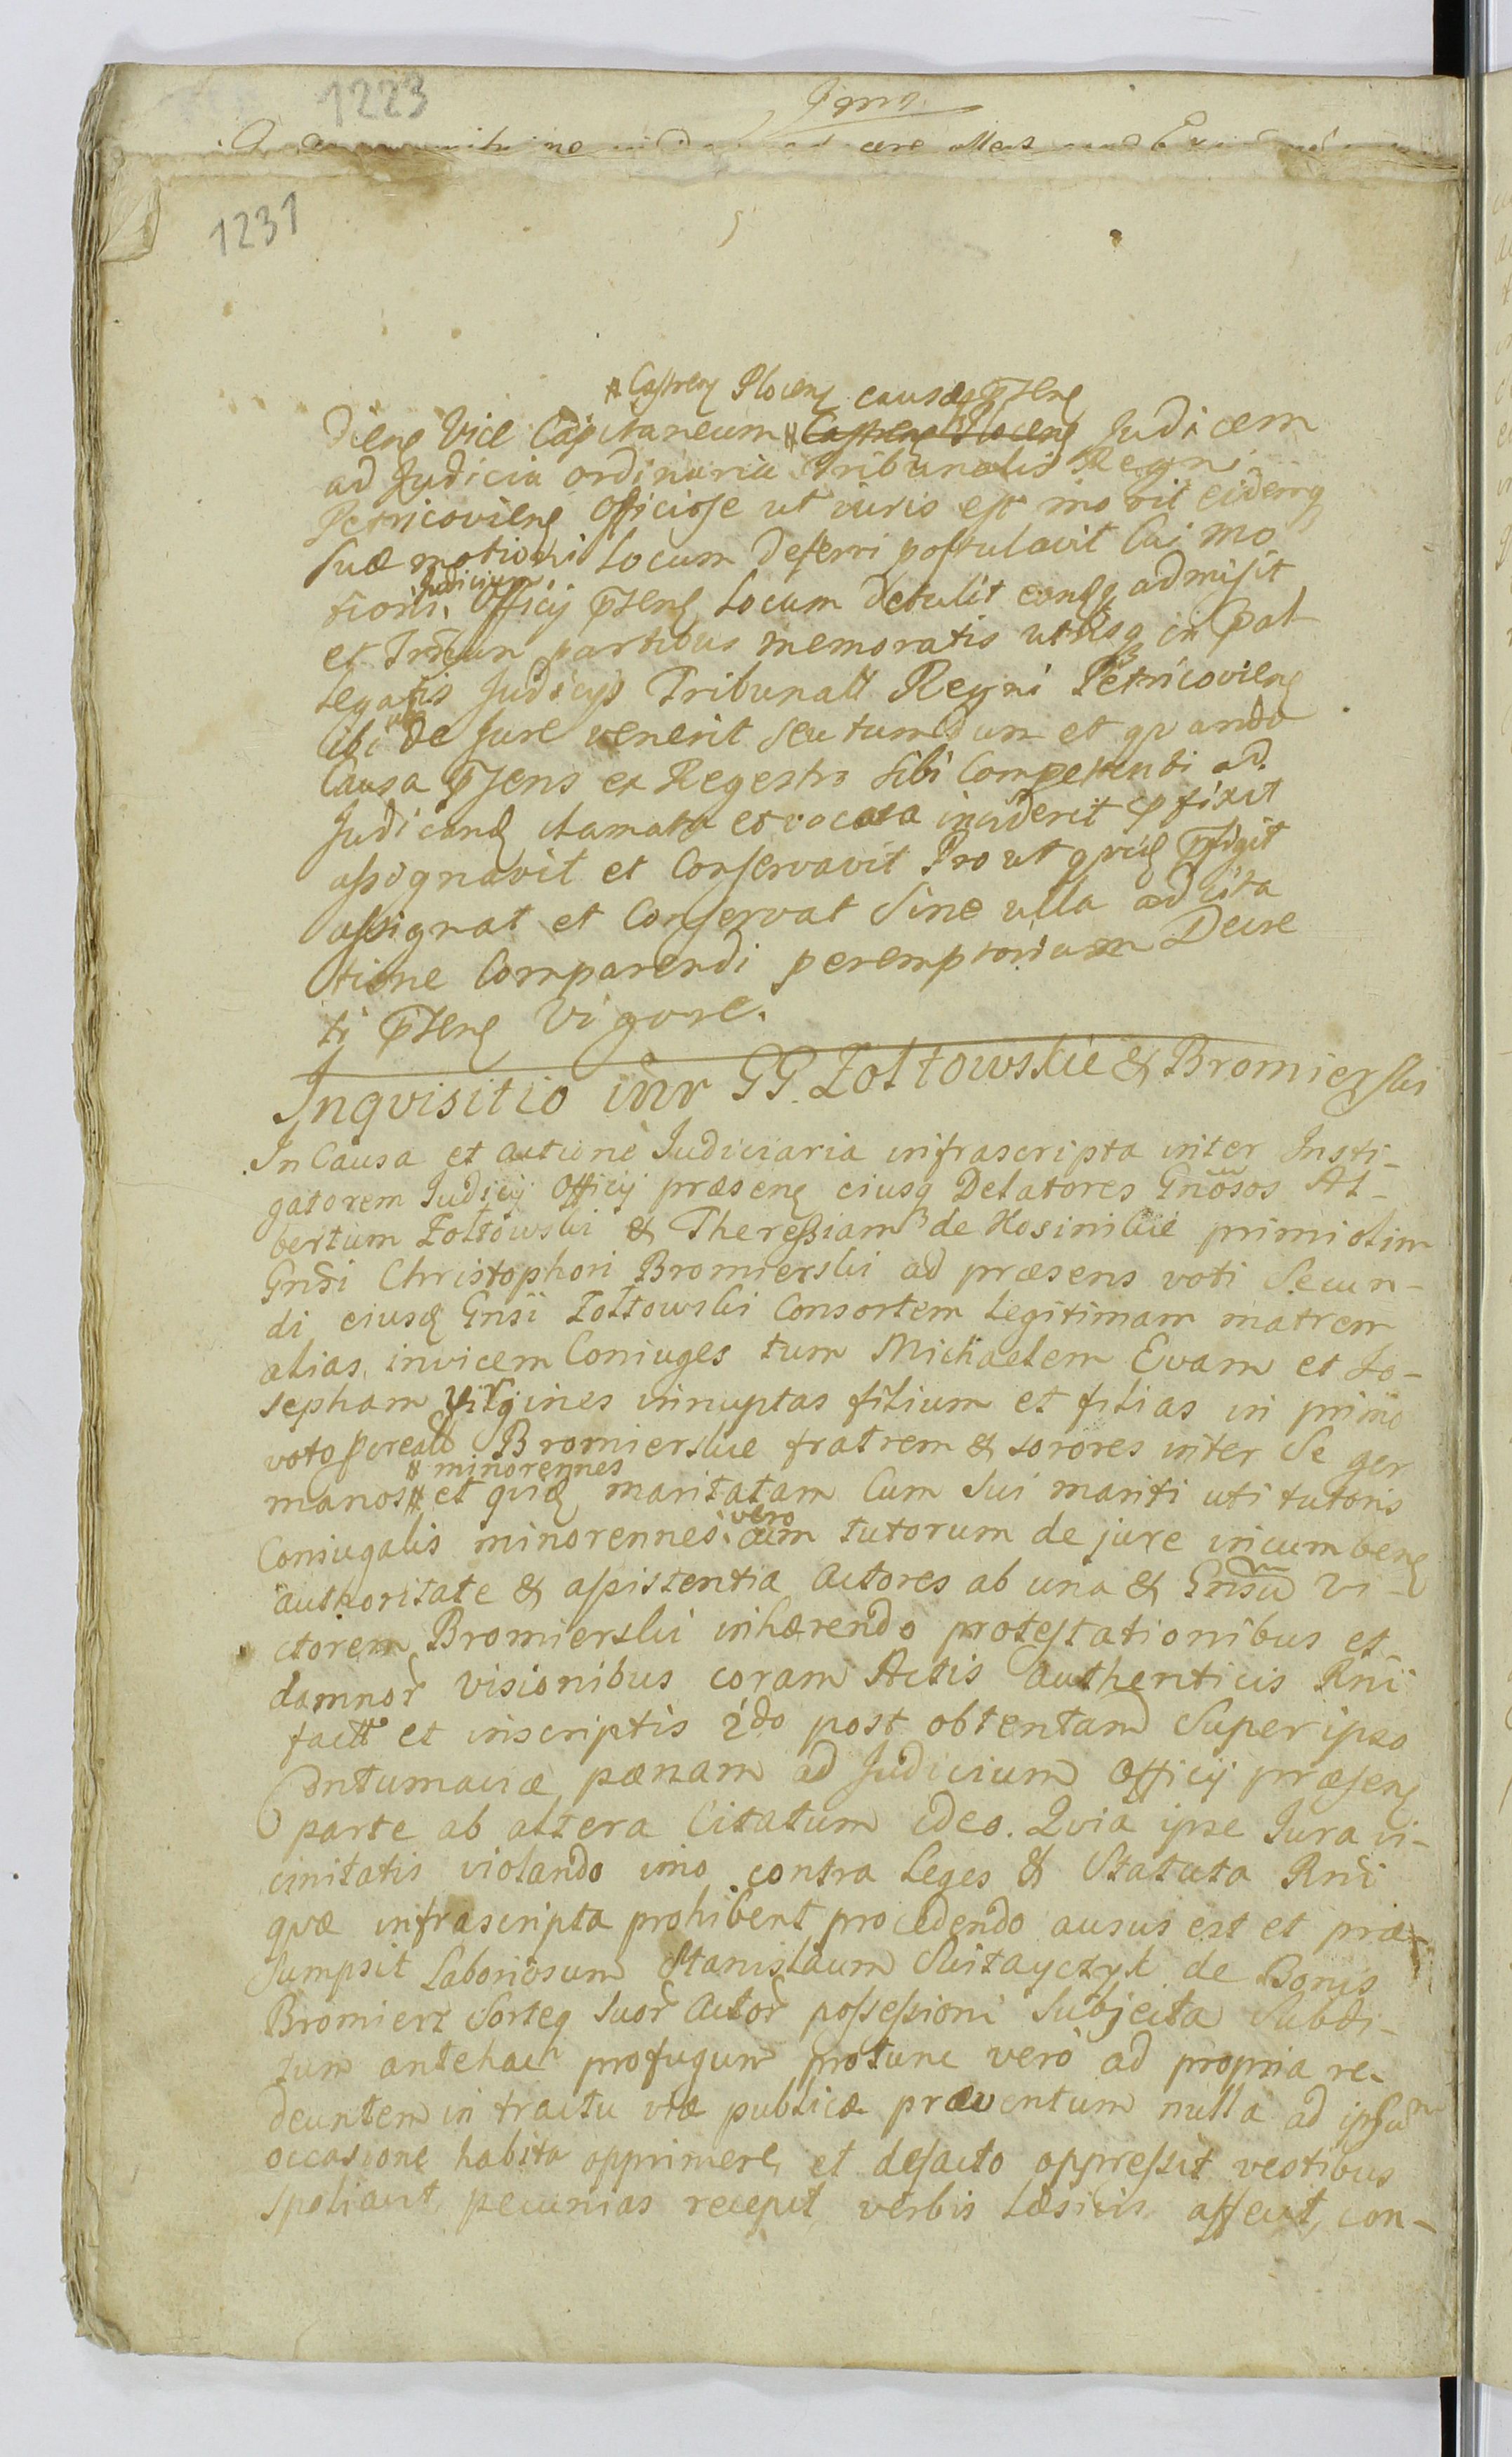 1223
1231
# Castren Plocen causæq̨ p̄sene
diene Vice Capitaneum # Castrene Plocene Judicem
ad Judicia ordinaria Tribunalis Regni
Petricoviene Officiose ut iuris est movit eidemq̨
suæ motioni Locum deferri postulavit Cui mo
tioni Judicium Officij p̄sene Locum detulit eamq̨ admisit
et partibus memoratis utrisq̨ in Pal
legatis Judicijs Tribunall Regni Petricoviene
ibi de Jure venerit seu tum dum et qvando
Causa p̄sens ex Regestro sibi Competenti ad
Judicand clamata et vocata inciderit p̄fixit
assignavit et Conservavit Prout p̄figit
assignat et Conservat Sine ulla adcita
tione Comparendi peremptorium Decre
ti p̄sene Vigore.
Inqvisitio intr GG. Zołtowskie & Bromierski
In Causa et actione Judiciaria infrascripta inter Insti-
gatorem Judicij Officij præsene eiusq̨ Delatores Gnosos Al-
bertum Zołtowski & Theressiam de Kosinskie primi olim
Gnsi Christophori Bromierski ad præsens voti Secun-
di eiusd Gnsi Zołtowski Consortem Legitimam matrem
alias invicem Coniuges tum Michaelem Evam et Jo-
sepham virgines innuptas filium et filias in primo
voto Bromierskie fratrem & sorores inter Se ger
manos # # minorennes et qvid maritatam Cum Sui mariti uti tutoris
Coniugalis minorennes vero cum tutorum de jure incumbene
authoritate & assistentia Actores ab una & Gnsu Vi-
ctorem Bromierski inhærendo protestationibus et
damnor visionibus coram Actis Authenticis Rni
factt et inscriptis 2do post obtentam Super ipso
Contumaciæ pænam ad Judicium Officij præsene
parte ab altera Citatum ideo. Qvia ipse Jura vi-
cinitatis violando imo contra Leges & Statuta Rni
qvæ infrascripta prohibent procedendo ausus est et præ-
sumpsit Laboriosum Stanislaum Skitayczyk de Bonis
Bromierz Sorteq suor Actor possessioni Subjecta Subdi-
tum antehach profugum protunc verò ad propria re-
deuntem in tractu viæ publicæ præventum nulla ad ipsum
occasione habita opprimere, et defacto oppressit vestibus
spoliavit, pecunias recepit verbis Læsivis affecit, con-